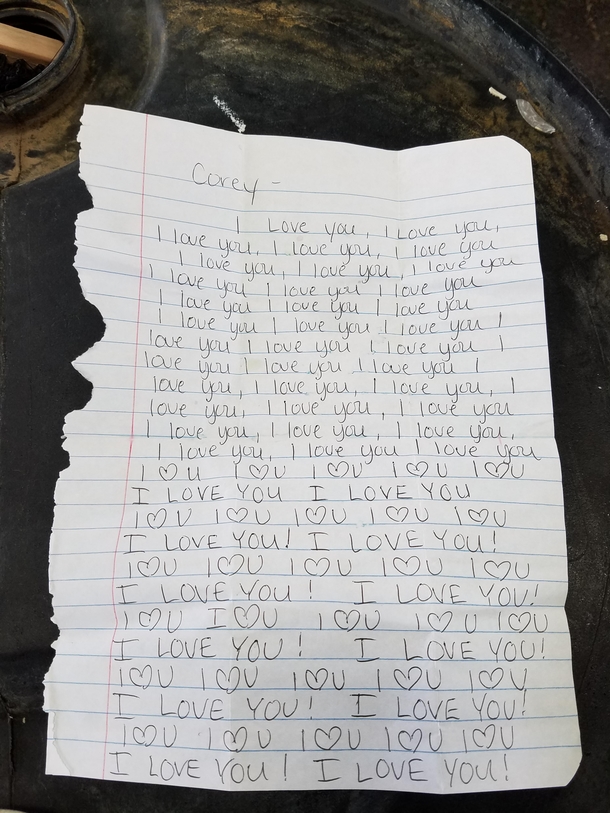 Corey -
I Love you, I Love you,
I love you, I love you, I love you
I love you, I love you, I love you
I love you I love you I love you
I love you I love you I love you
I love you I love you I love you I
love you I love you I love you I
love you I love you I love you I
love you, I love you, I love you, I
love you, I love you, I love you
I love you, I love you, I love you,
I love you, I love you I love you
I ♡ U I ♡ U I ♡ U I ♡ U I ♡ U
I LOVE YOU I LOVE YOU
I ♡ U I ♡ U I ♡ U I ♡ U I ♡ U
I LOVE YOU! I LOVE YOU!
I ♡ U I ♡ U I ♡ U I ♡ U I ♡ U
I LOVE YOU! I LOVE YOU!
I ♡ U I ♡ U I ♡ U I ♡ U I ♡ U
I LOVE YOU! I LOVE YOU!
I ♡ U I ♡ U I ♡ U I ♡ U I ♡ U
I LOVE YOU! I LOVE YOU!
I ♡ U I ♡ U I ♡ U I ♡ U I ♡ U
I LOVE YOU! I LOVE YOU!